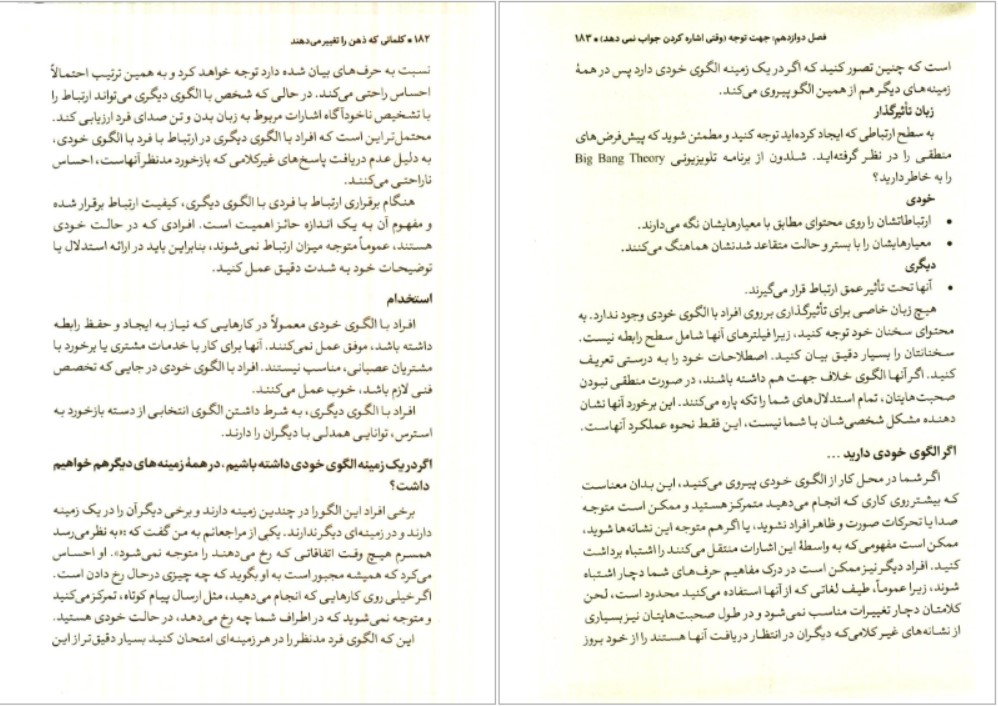 ۱۸۲ • کلماتی که ذهن را تغییر می‌دهند
نسبت به حرف‌های بیان شده دارد توجه خواهد کرد و به همین ترتیب احتمالاً
احساس راحتی می‌کند. در حالی که شخص با الگوی دیگری می‌تواند ارتباط را
با تشخیص ناخودآگاه اشارات مربوط به زبان بدن و تن صدای فرد ارزیابی کند.
محتمل‌تر این است که افراد با الگوی دیگری در ارتباط با فرد با الگوی خودی،
به دلیل عدم دریافت پاسخ‌های غیرکلامی که بازخورد مدنظر آنهاست، احساس
ناراحتی می‌کنند.
هنگام برقراری ارتباط با فردی با الگوی دیگری، کیفیت ارتباط برقرار شده
و مفهوم آن به یک اندازه حائز اهمیت است. افرادی که در حالت خودی
هستند، عموماً متوجه میزان ارتباط نمی‌شوند، بنابراین باید در ارائه استدلال یا
توضیحات خود به شدت دقیق عمل کنید.
استخدام
افراد با الگوی خودی معمولاً در کارهایی که نیاز به ایجاد و حفظ رابطه
داشته باشد، موفق عمل نمی‌کنند. آنها برای کار با خدمات مشتری یا برخورد با
مشتریان عصبانی، مناسب نیستند. افراد با الگوی خودی در جایی که تخصص
فنی لازم باشد، خوب عمل می‌کنند.
افراد با الگوی دیگری، به شرط داشتن الگوی انتخابی از دسته بازخورد به
استرس، توانایی همدلی با دیگران را دارند.
اگر در یک زمینه الگوی خودی داشته باشیم، در همهٔ زمینه‌های دیگر هم خواهیم
داشت؟
برخی افراد این الگو را در چندین زمینه دارند و برخی دیگر آن را در یک زمینه
دارند و در زمینه‌ای دیگر ندارند. یکی از مراجعانم به من گفت که :«به نظر می‌رسد
همسرم هیچ وقت اتفاقاتی که رخ می‌دهند را متوجه نمی‌شود». او احساس
می‌کرد که همیشه مجبور است به او بگوید که چه چیزی درحال رخ دادن است.
اگر خیلی روی کارهایی که انجام می‌دهید، مثل ارسال پیام کوتاه، تمرکز می‌کنید
و متوجه نمی‌شوید که در اطراف شما چه رخ می‌دهد، در حالت خودی هستید.
این که الگوی فرد مدنظر را در هر زمینه‌ای امتحان کنید بسیار دقیق‌تر از این
فصل دوازدهم: جهت توجه (وقتی اشاره کردن جواب نمی دهد) • ۱۸۳
است که چنین تصور کنید که اگر در یک زمینه الگوی خودی دارد پس در همهٔ
زمینه‌های دیگر هم از همین الگو پیروی می‌کند.
زبان تأثیرگذار
به سطح ارتباطی که ایجاد کرده‌اید توجه کنید و مطمئن شوید که پیش‌فرض‌های
منطقی را در نظر گرفته‌اید. شلدون از برنامه تلویزیونی Big Bang Theory
را به خاطر دارید؟
خودی
• ارتباطاتشان را روی محتوای مطابق با معیارهایشان نگه می‌دارند.
• معیارهایشان را با بستر و حالت متقاعد شدنشان هماهنگ می‌کنند.
دیگری
• آنها تحت تأثیر عمق ارتباط قرار می‌گیرند.
هیچ زبان خاصی برای تأثیرگذاری بر روی افراد با الگوی خودی وجود ندارد. به
محتوای سخنان خود توجه کنید، زیرا فیلترهای آنها شامل سطح رابطه نیست.
سخنانتان را بسیار دقیق بیان کنید. اصطلاحات خود را به درستی تعریف
کنید. اگر آنها الگوی خلاف جهت هم داشته باشند، در صورت منطقی نبودن
صحبت‌هایتان، تمام استدلال‌های شما را تکه پاره می‌کنند. این برخورد آنها نشان
دهنده مشکل شخصی‌شان با شما نیست، این فقط نحوه عملکرد آنهاست.
اگر الگوی خودی دارید ...
اگر شما در محل کار از الگوی خودی پیروی می‌کنید، این بدان معناست
که بیشتر روی کاری که انجام می‌دهید متمرکز هستید و ممکن است متوجه
صدا یا تحرکات صورت و ظاهر افراد نشوید، یا اگر هم متوجه این نشانه‌ها شوید،
ممکن است مفهومی که به واسطهٔ این اشارات منتقل می‌کنند را اشتباه برداشت
کنید. افراد دیگر نیز ممکن است در درک مفاهیم حرف‌های شما دچار اشتباه
شوند، زیرا عموماً، طیف لغاتی که از آنها استفاده می‌کنید محدود است، لحن
کلامتان دچار تغییرات مناسب نمی‌شود و در طول صحبت‌هایتان نیز بسیاری
از نشانه‌های غیرکلامی‌که دیگران در انتظار دریافت آنها هستند را از خود بروز